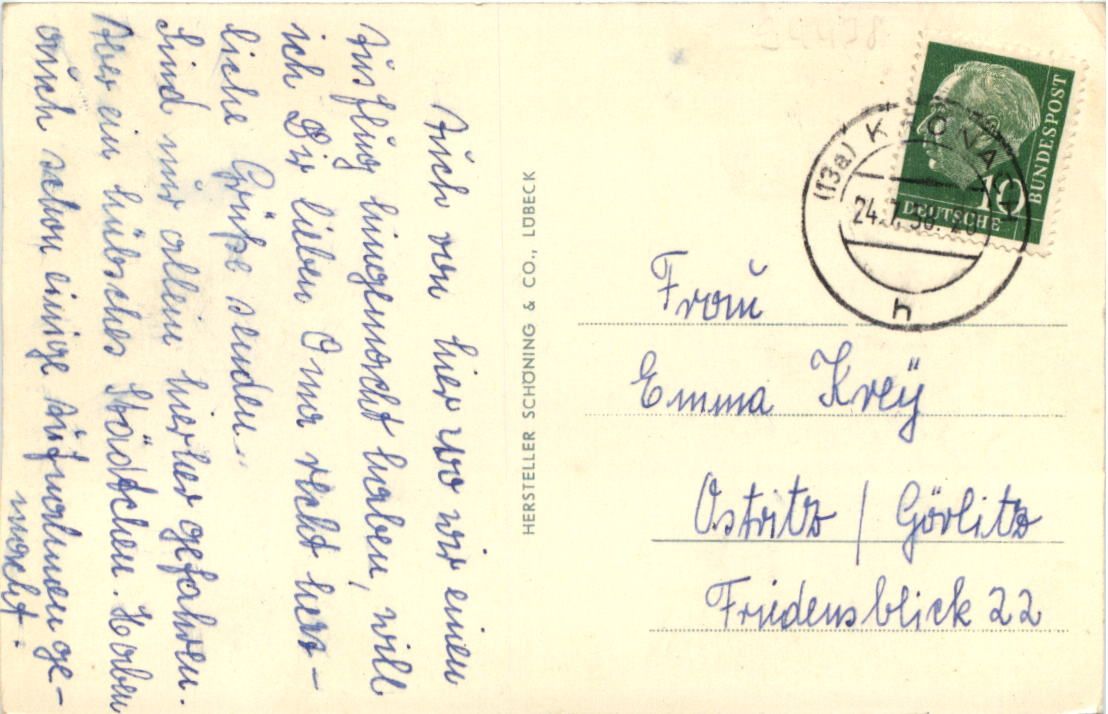 Auch von hier wo wir einen
Ausflug hingemacht haben, will
ich Dir lieben Oma recht herz-
liche Grüße senden.
Sind nur allein hierher gefahren.
Aber ein hübsches Städtchen. Haben
auch schon einige Aufnahmen ge-
macht.
HERSTELLER SCHÖNING & CO., LÜBECK
DEUTSCHE
BUNDESPOST
10
(13a)
24.7.58
h
Frau
Emma Krey
Ostritz / Görlitz
Friedensblick 22